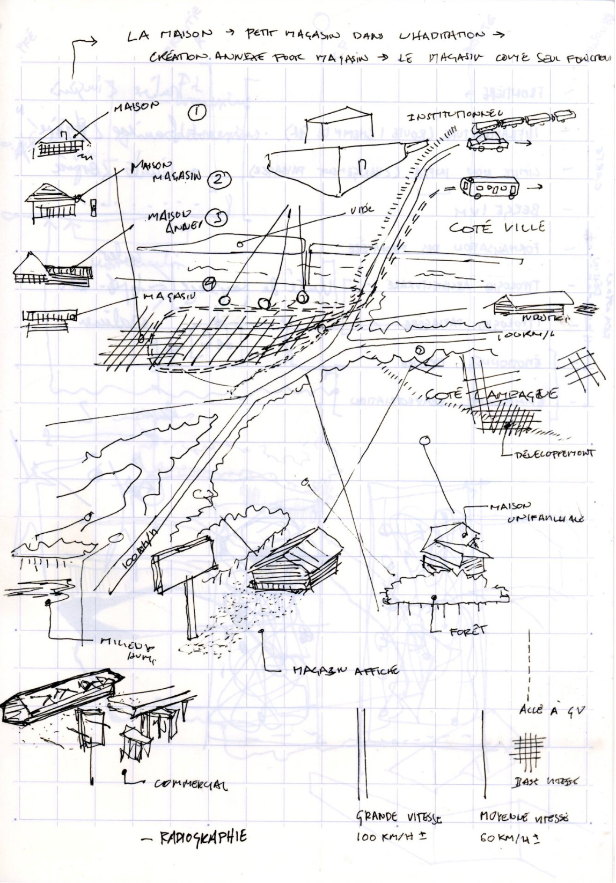 LA MAISON → PETIT MAGASIN DANS L'HABITATION →
CRÉATION ANNEXE POUR MAGASIN → LE MAGASIN COMME SEUL FONCTION
MAISON
①
MAISON
MAGASIN ②
MAISON
ANNEXE ③
④
MAGASIN
INSTITUTIONNEL
VIDE
COTÉ VILLE
100 KM/H
COTÉ CAMPAGNE
DÉVELOPPEMENT
100 KM/H
MAISON
UNIFAMILIALE
FORÊT
MILIEUX
MAGASIN AFFICHE
COMMERCIAL
GRANDE VITESSE
100 KM/H ±
MOYENNE VITESSE
60 KM/H ±
BASE VITESSE
- RADIOGRAPHIE